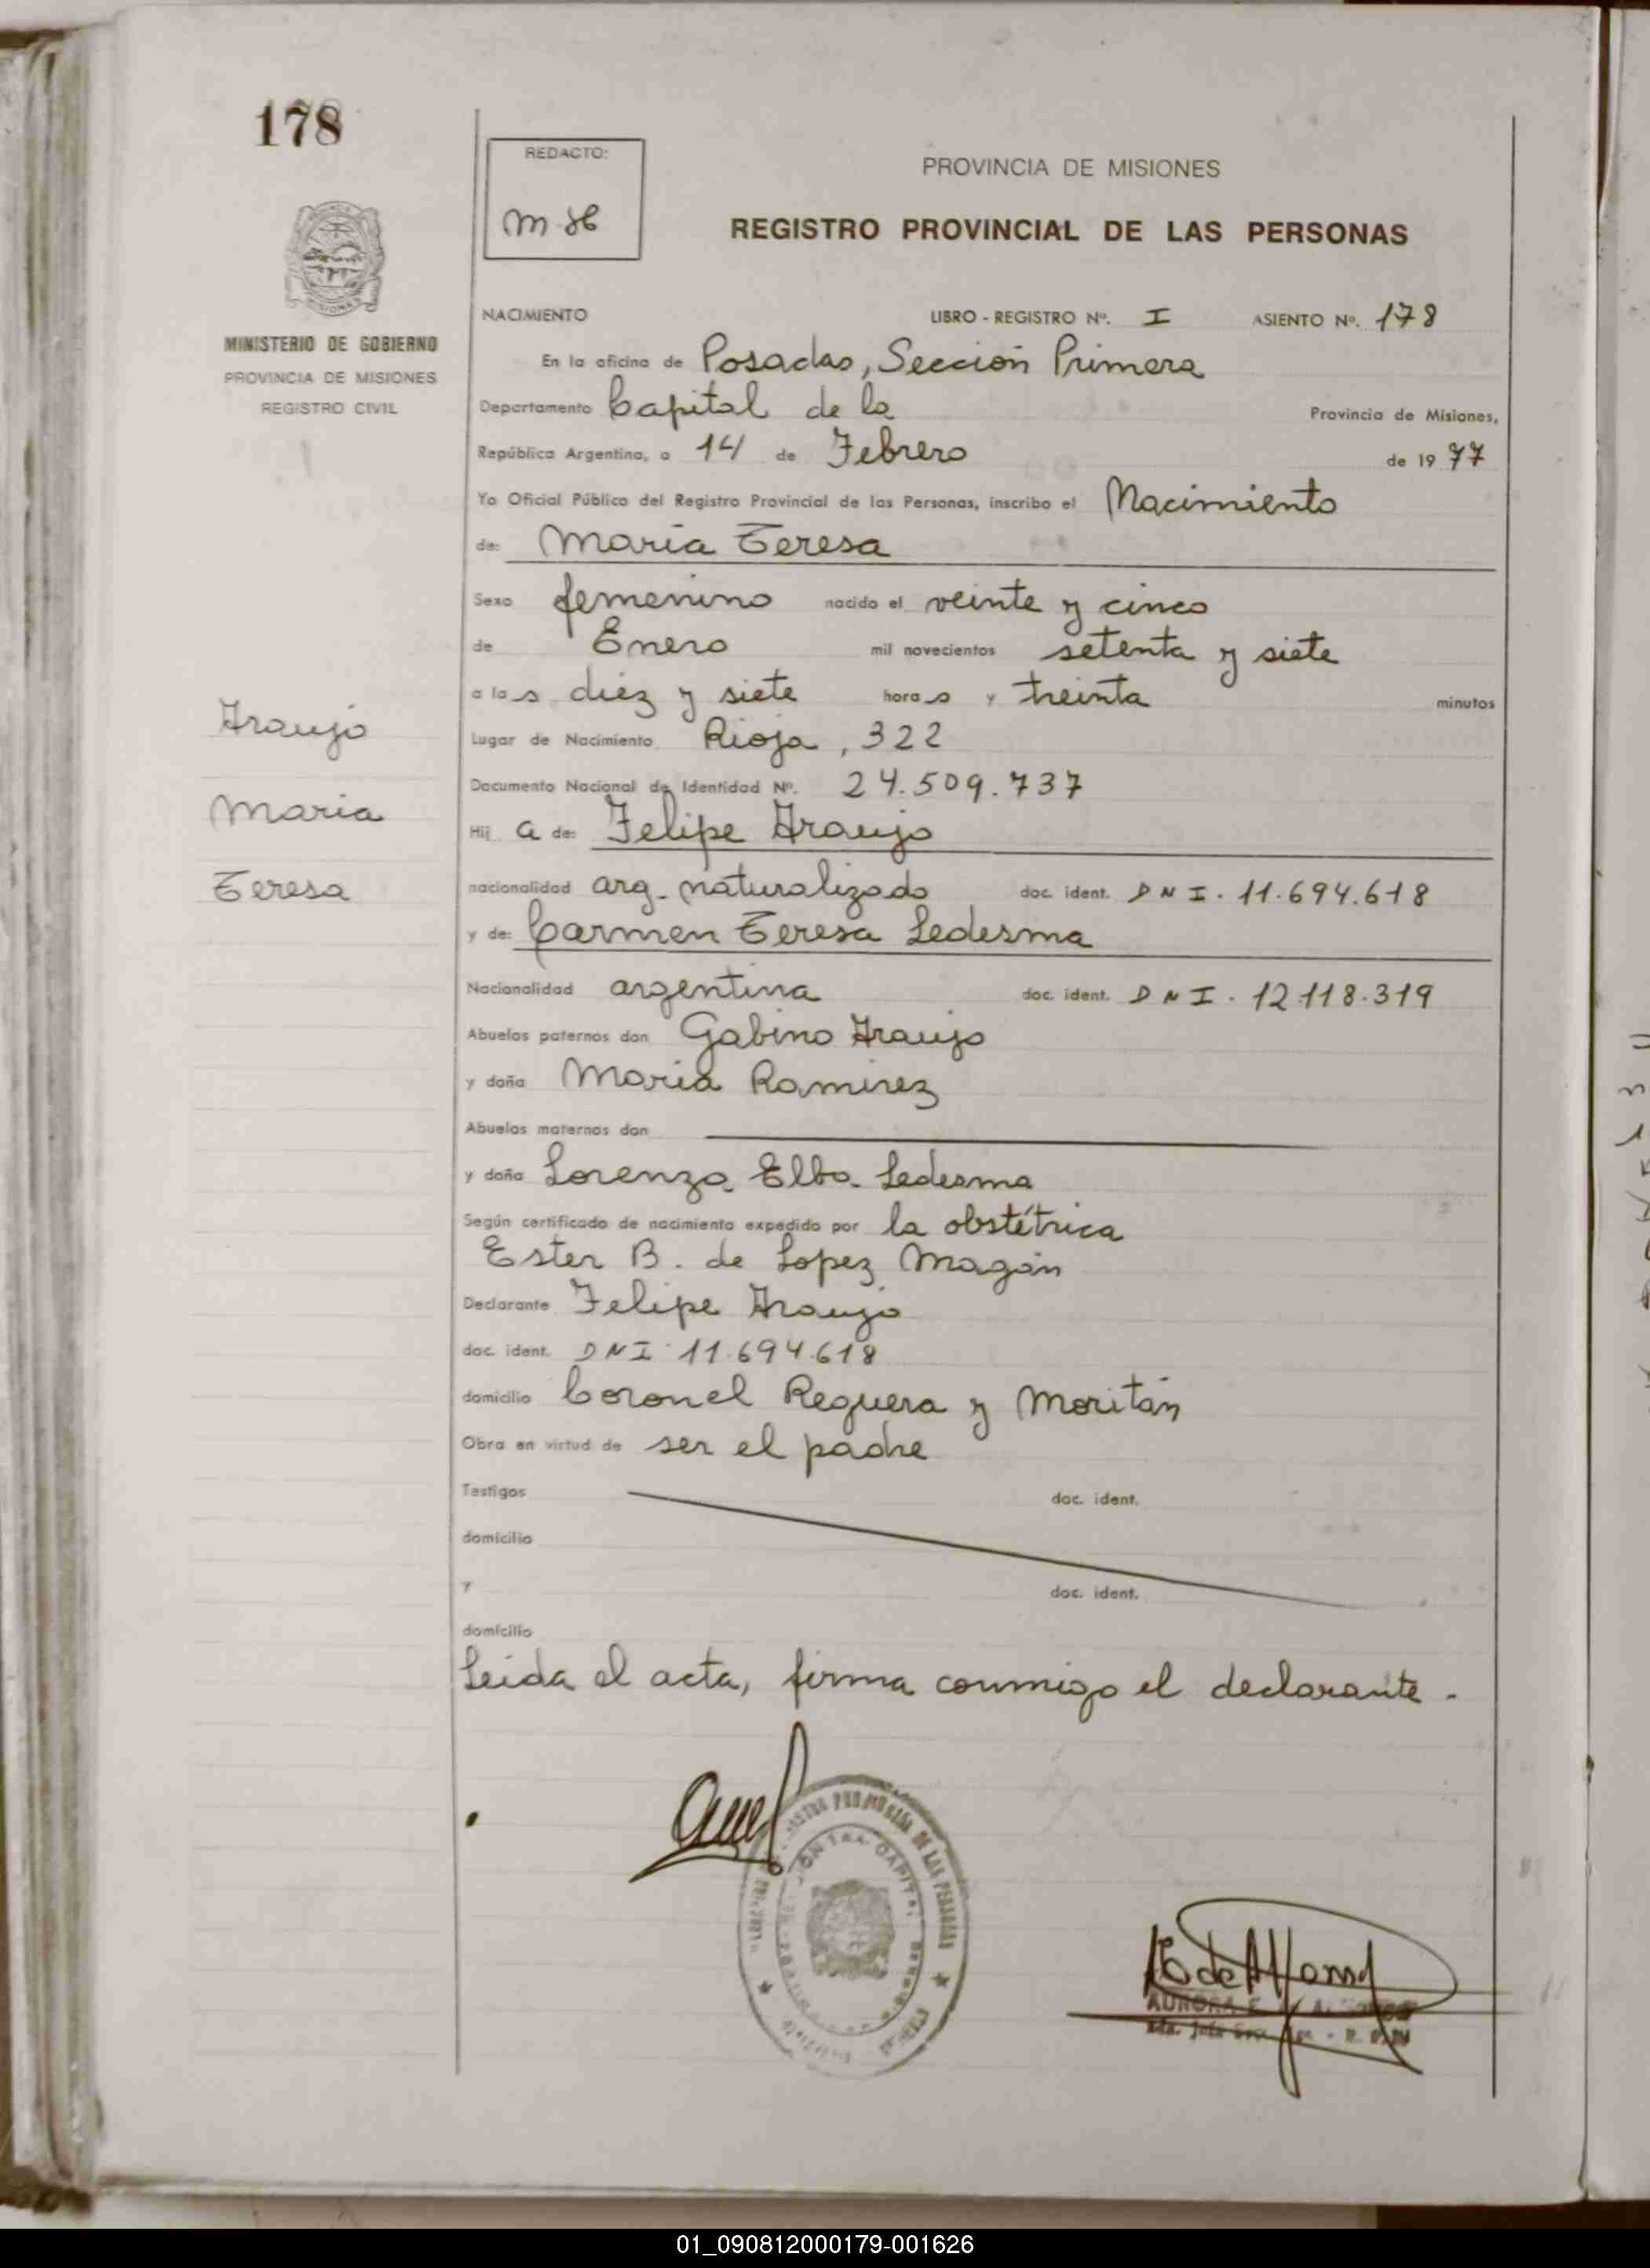 178
REDACTO:
PROVINCIA DE MISIONES
REGISTRO PROVINCIAL DE LAS PERSONAS
MINISTERIO DE GOBIERNO
PROVINCIA DE MISIONES
REGISTRO CIVIL
NACIMIENTO LIBRO - REGISTRO Nº. I ASIENTO Nº. 178
En la oficina de Posadas, Sección Primera
Departamento Capital de la Provincia de Misiones,
República Argentina, a 14 de Febrero de 1977
Yo Oficial Público del Registro Provincial de las Personas, inscribo el Nacimiento
de: María Teresa
Sexo femenino nacido el veinte y cinco
de Enero mil novecientos setenta y siete
a las diez y siete horas y treinta minutos
Lugar de Nacimiento Rioja, 322
Documento Nacional de Identidad Nº. 24.509.737
Hija de: Felipe Araujo
nacionalidad arg. naturalizado doc. ident. DNI. 11.694.618
y de: Carmen Teresa Ledesma
Nacionalidad argentina doc. ident. DNI. 12.118.319
Abuelos paternos don Gabino Araujo
y doña María Ramirez
Abuelos maternos don
y doña Lorenza Elba Ledesma
Según certificado de nacimiento expedido por la obstétrica
Ester B. de Lopez Magán
Declarante Felipe Araujo
doc. ident. DNI 11.694.618
domicilio Coronel Reguera y Moritán
Obra en virtud de ser el padre
Testigos doc. ident.
domicilio
y doc. ident.
domicilio
Leida el acta, firma conmigo el declarante.
Araujo
Maria
Teresa
01_090812000179-001626